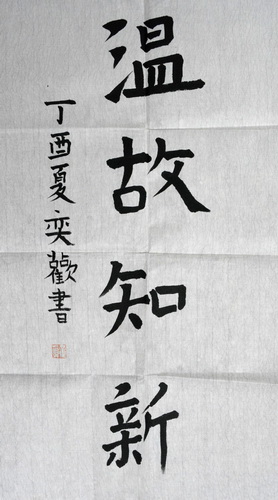 温故知新
丁酉夏奕歡書